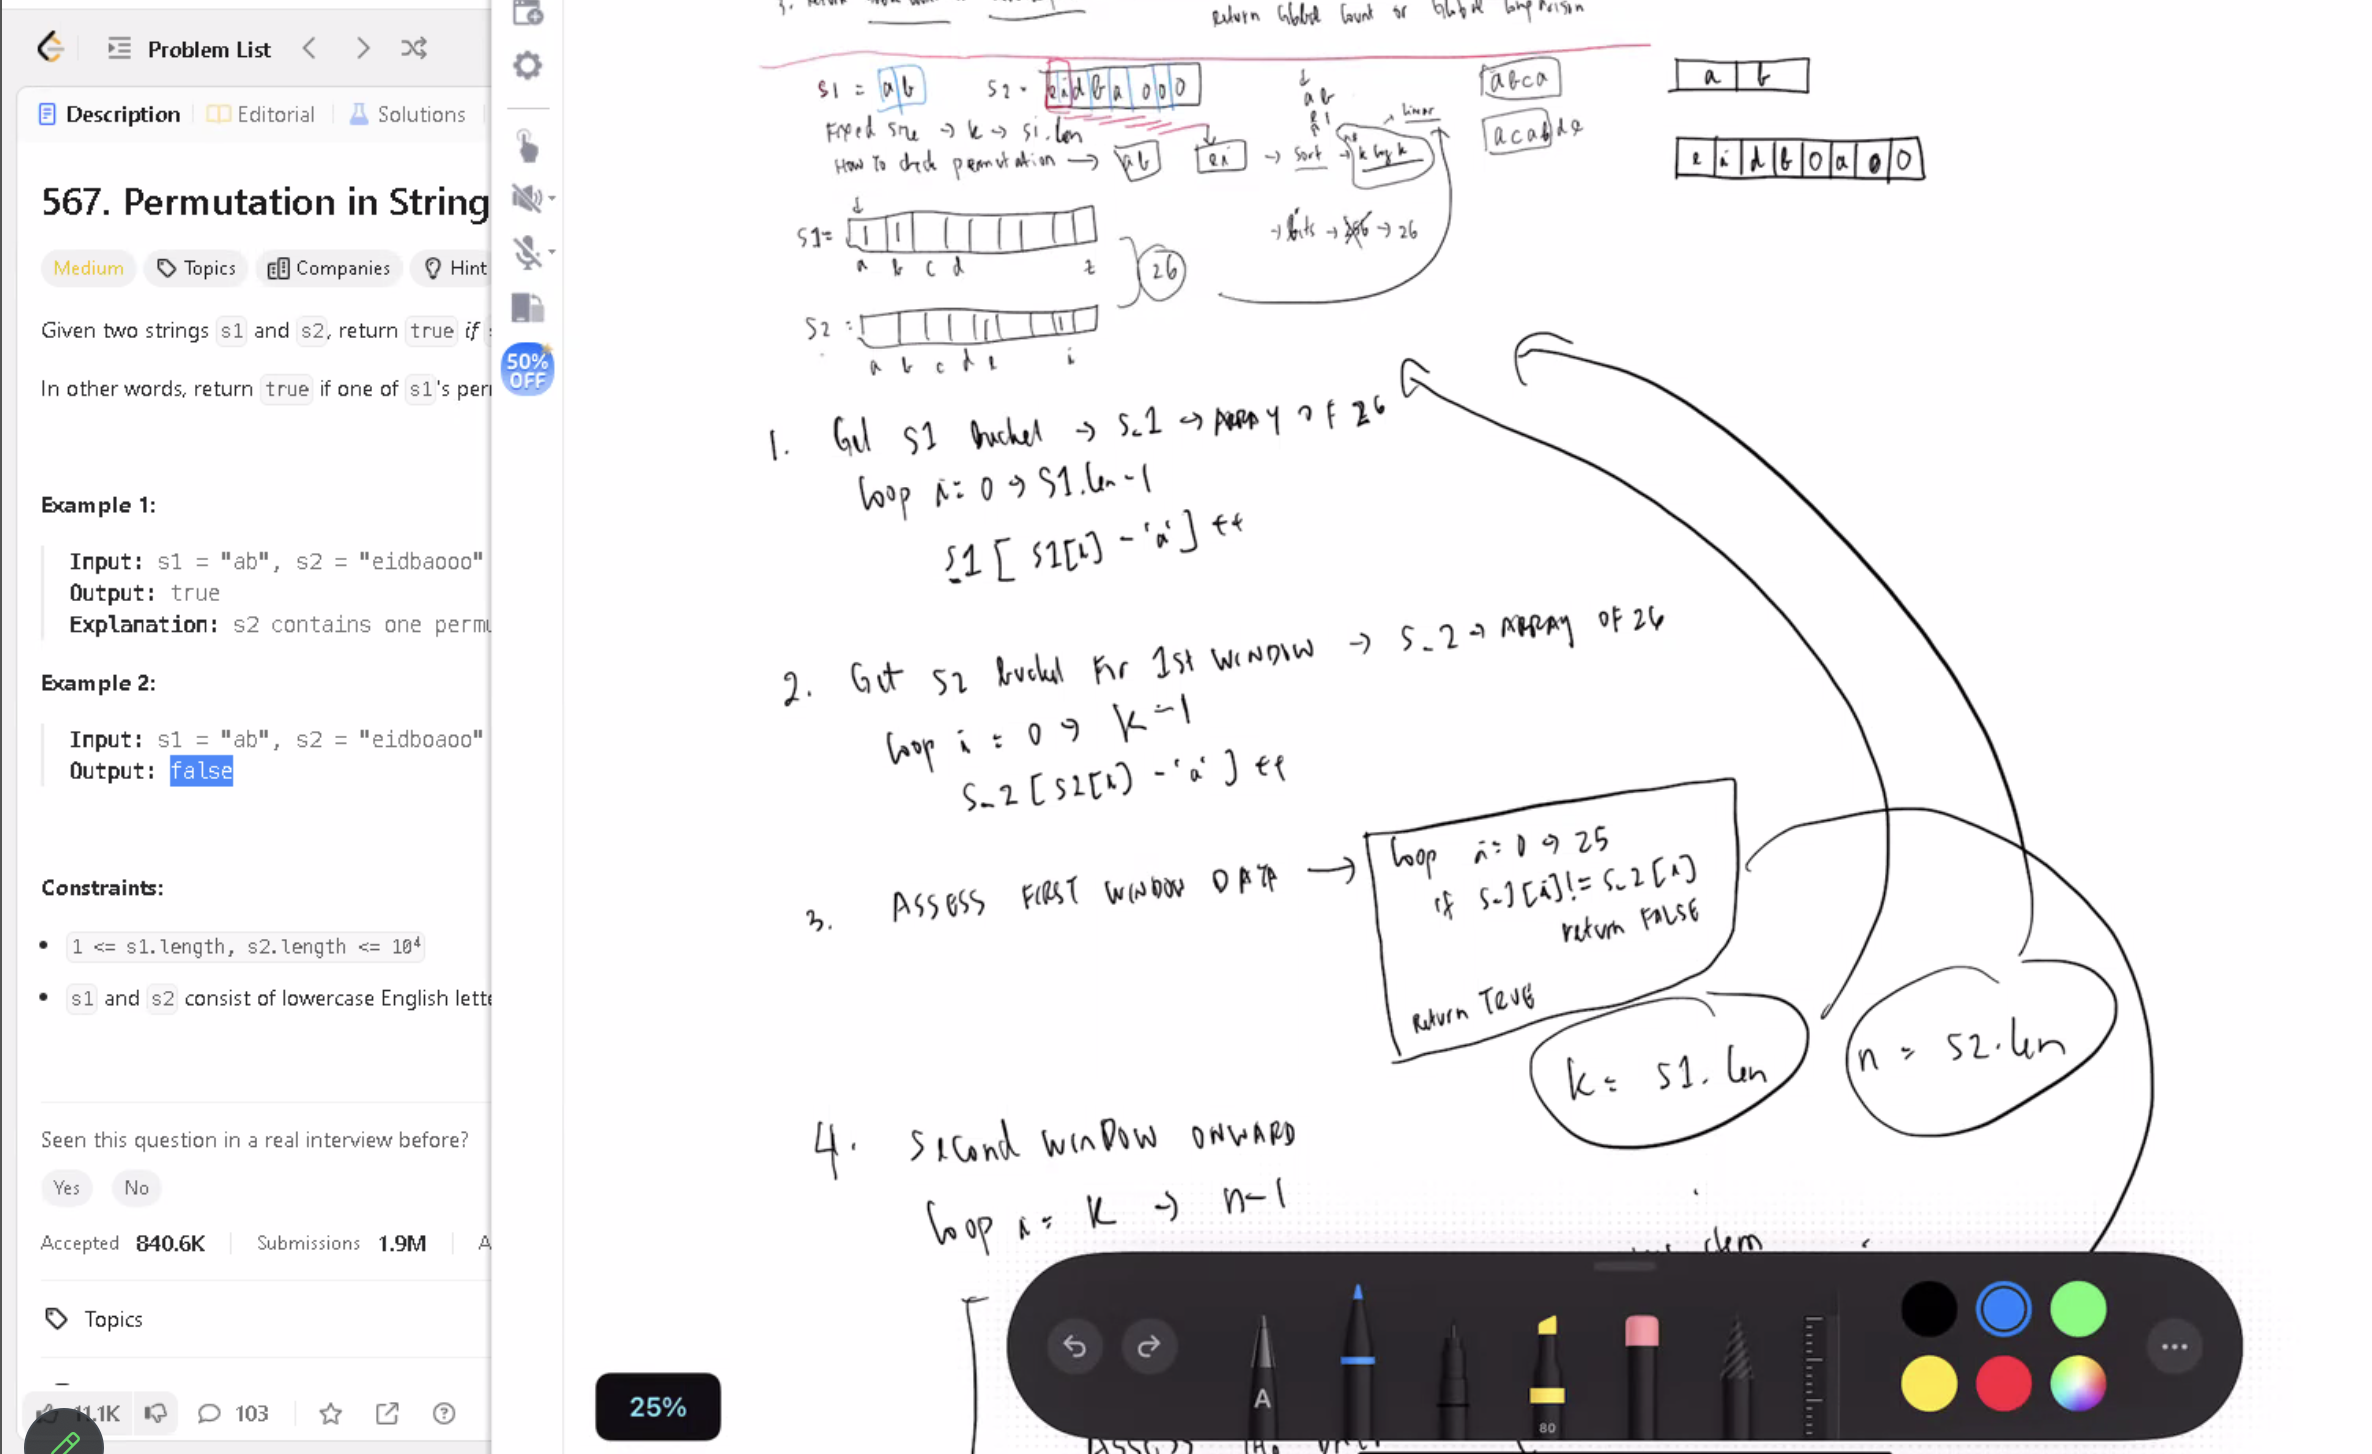 Problem List
Description
Editorial
Solutions
567. Permutation in String
Medium
Topics
Companies
Hint
Given two strings s1 and s2, return true if
In other words, return true if one of s1's per
Example 1:
Input: s1 = "ab", s2 = "eidbaooo"
Output: true
Explanation: s2 contains one perm
Example 2:
Input: s1 = "ab", s2 = "eidboaoo"
Output: false
Constraints:
1 <= s1.length, s2.length <= 10⁴
s1 and s2 consist of lowercase English lette
Seen this question in a real interview before?
Yes No
Accepted 840.6K Submissions 1.9M A
Topics
11.1K 103
50% OFF
Return Global Count or Global Comparison
S1 = a b S2 = e i d b a o o o
Fixed size → k → S1.len
How to check permutation → ab ei → sort → k log k
Linear
ab
ei
abca
acabde
a b
e i d b o a o o
S1=
a b c d z
26
→ bits → 256 → 26
S2 =
a b c d e i
1. Get S1 bucket → S_1 → ARRAY OF 26
loop i = 0 → S1.len-1
S_1 [ S1[i] - 'a' ] ++
2. Get S2 bucket for 1st WINDOW → S_2 → ARRAY OF 26
loop i = 0 → k-1
S_2 [ S2[i] - 'a' ] ++
3. ASSESS FIRST WINDOW DATA →
loop i = 0 → 25
if S_1[i] != S_2[i]
return FALSE
Return TRUE
k = S1.len
n = S2.len
4. Second WINDOW ONWARD
loop i = k → n-1
25%
A
80
ASSESS THE